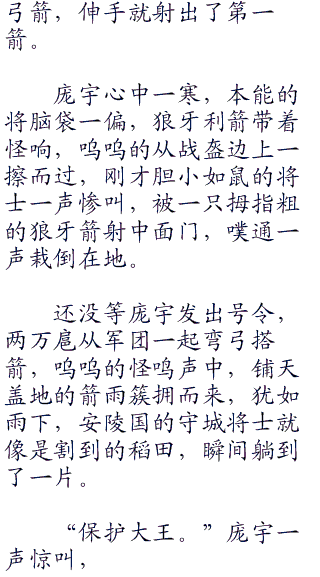 弓箭，伸手就射出了第一
箭。
庞宇心中一寒，本能的
将脑袋一偏，狼牙利箭带着
怪响，呜呜的从战盔边上一
擦而过，刚才胆小如鼠的将
士一声惨叫，被一只拇指粗
的狼牙箭射中面门，噗通一
声栽倒在地。
还没等庞宇发出号令，
两万扈从军团一起弯弓搭
箭，呜呜的怪鸣声中，铺天
盖地的箭雨簇拥而来，犹如
雨下，安陵国的守城将士就
像是割到的稻田，瞬间躺到
了一片。
“保护大王。”庞宇一
声惊叫，